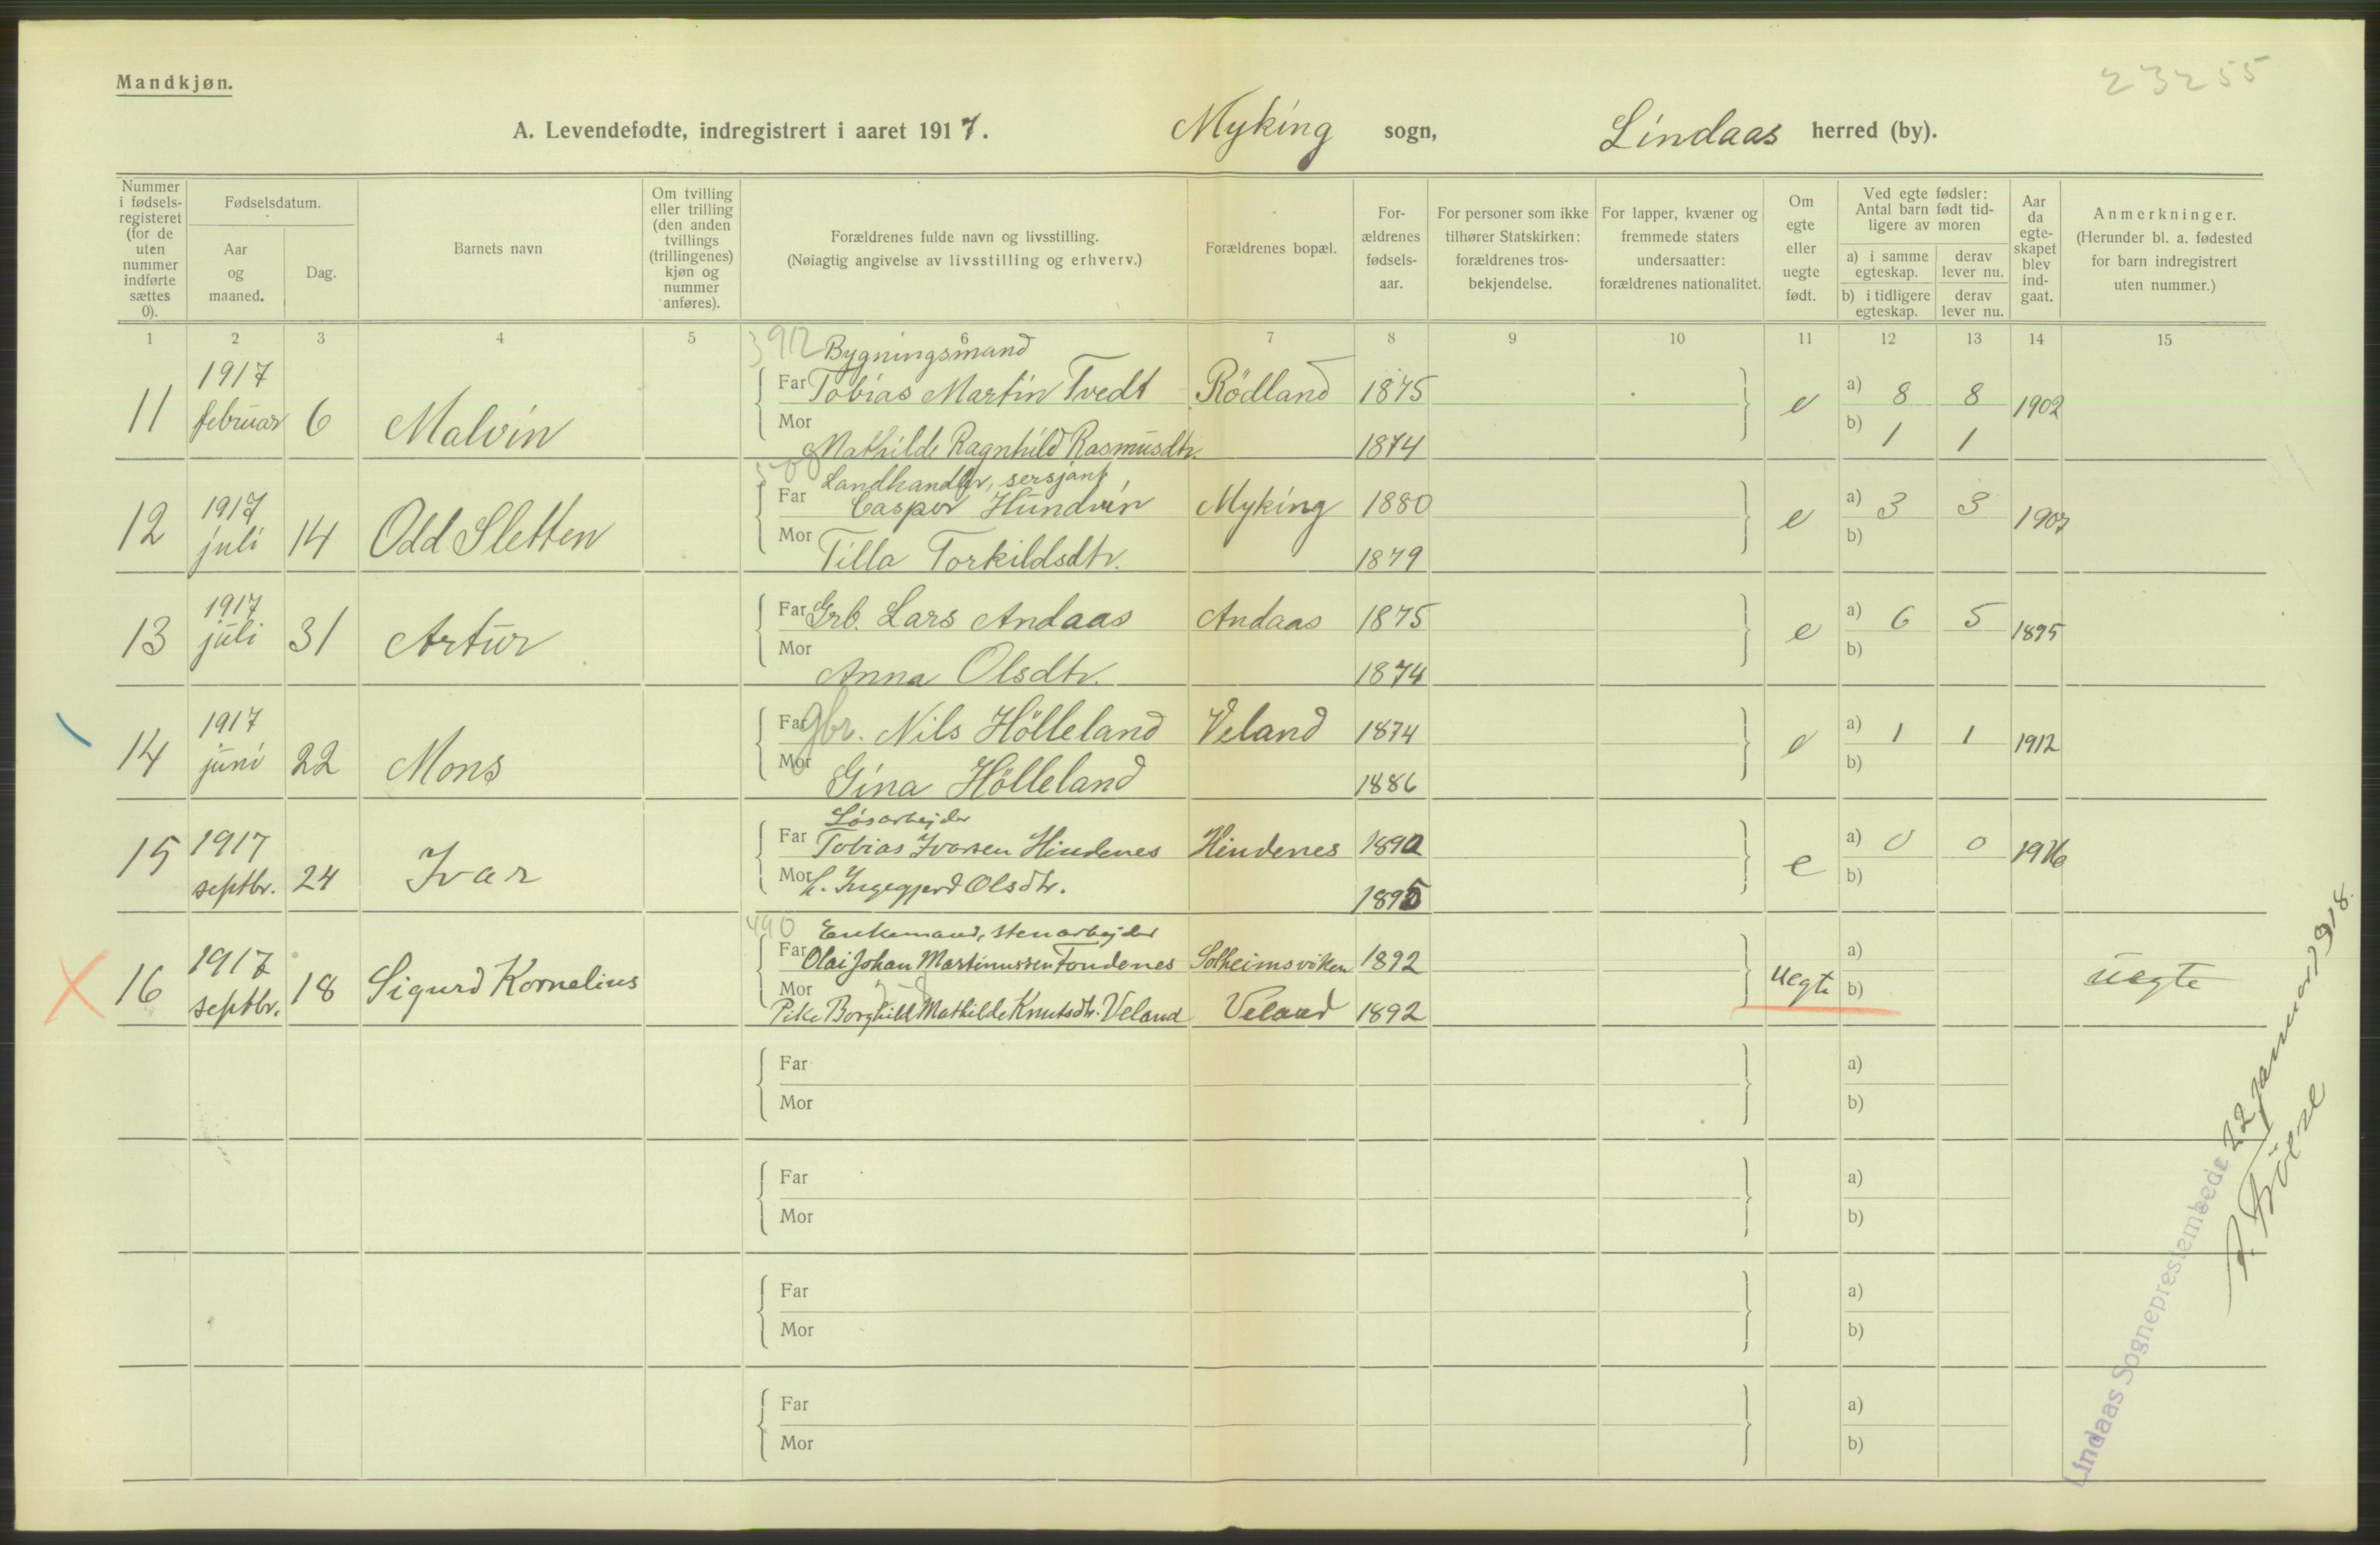 Mandkjøn.
23255
A. Levendefødte, indregistrert i aaret 1917. Myking sogn, Lindaas herred (by).
Nummer i fødsels-registeret (for de uten nummer indførte sættes 0).
Fødselsdatum.
Aar og maaned.
Dag.
Barnets navn
Om tvilling eller trilling (den anden tvillings (trillingenes) kjøn og nummer anføres).
Forældrenes fulde navn og livsstilling.
(Nøiagtig angivelse av livsstilling og erhverv.)
Forældrenes bopæl.
For-ældrenes fødsels-aar.
For personer som ikke tilhører Statskirken: forældrenes tros-bekjendelse.
For lapper, kvæner og fremmede staters undersaatter: forældrenes nationalitet.
Om egte eller uegte født.
Ved egte fødsler: Antal barn født tid-ligere av moren
a) i samme egteskap.
derav lever nu.
b) i tidligere egteskap.
derav lever nu.
Aar da egte-skapet blev ind-gaat.
Anmerkninger.
(Herunder bl. a. fødested for barn indregistrert uten nummer.)
1 2 3 4 5 6 7 8 9 10 11 12 13 14 15
Bygningsmand
11 1917 februar 6 Malvin Far Tobias Martin Tvedt Rödland 1875 e a) 8 8 1902
Mor Mathilde Ragnhild Rasmusdtr. 1874 b) 1 1
Landhandler, sersjant
12 1917 juli 14 Odd Sletten Far Casper Hundvin Myking 1880 e a) 3 3 1907
Mor Tilla Torkildsdtr. 1879 b)
13 1917 juli 31 Artur Far Grb. Lars Andaas Andaas 1875 e a) 6 5 1895
Mor Anna Olsdtr. 1874 b)
14 1917 juni 22 Mons Far gbr. Nils Hölleland Veland 1874 e a) 1 1 1912
Mor Gina Hölleland 1886 b)
Løsarbejder
15 1917 septbr. 24 Ivar Far Tobias Ivarsen Hindenes Hindenes 1890 e a) 0 0 1916
Mor h. Ingegjerd Olsdtr. 1895 b)
490 Enkemand, stenarbejder
16 1917 septbr. 18 Sigurd Kornelius Far Olai Johan Martinussen Fondenes Solheimsviken 1892 uegte a) uegte
Mor Pike Borghild Mathilde Knutsdtr. Veland Veland 1892 b)
Far a)
Mor b)
Far a)
Mor b)
Far a)
Mor b)
Far a)
Mor b)
Lindaas Sogneprestembede 22 januar 1918.